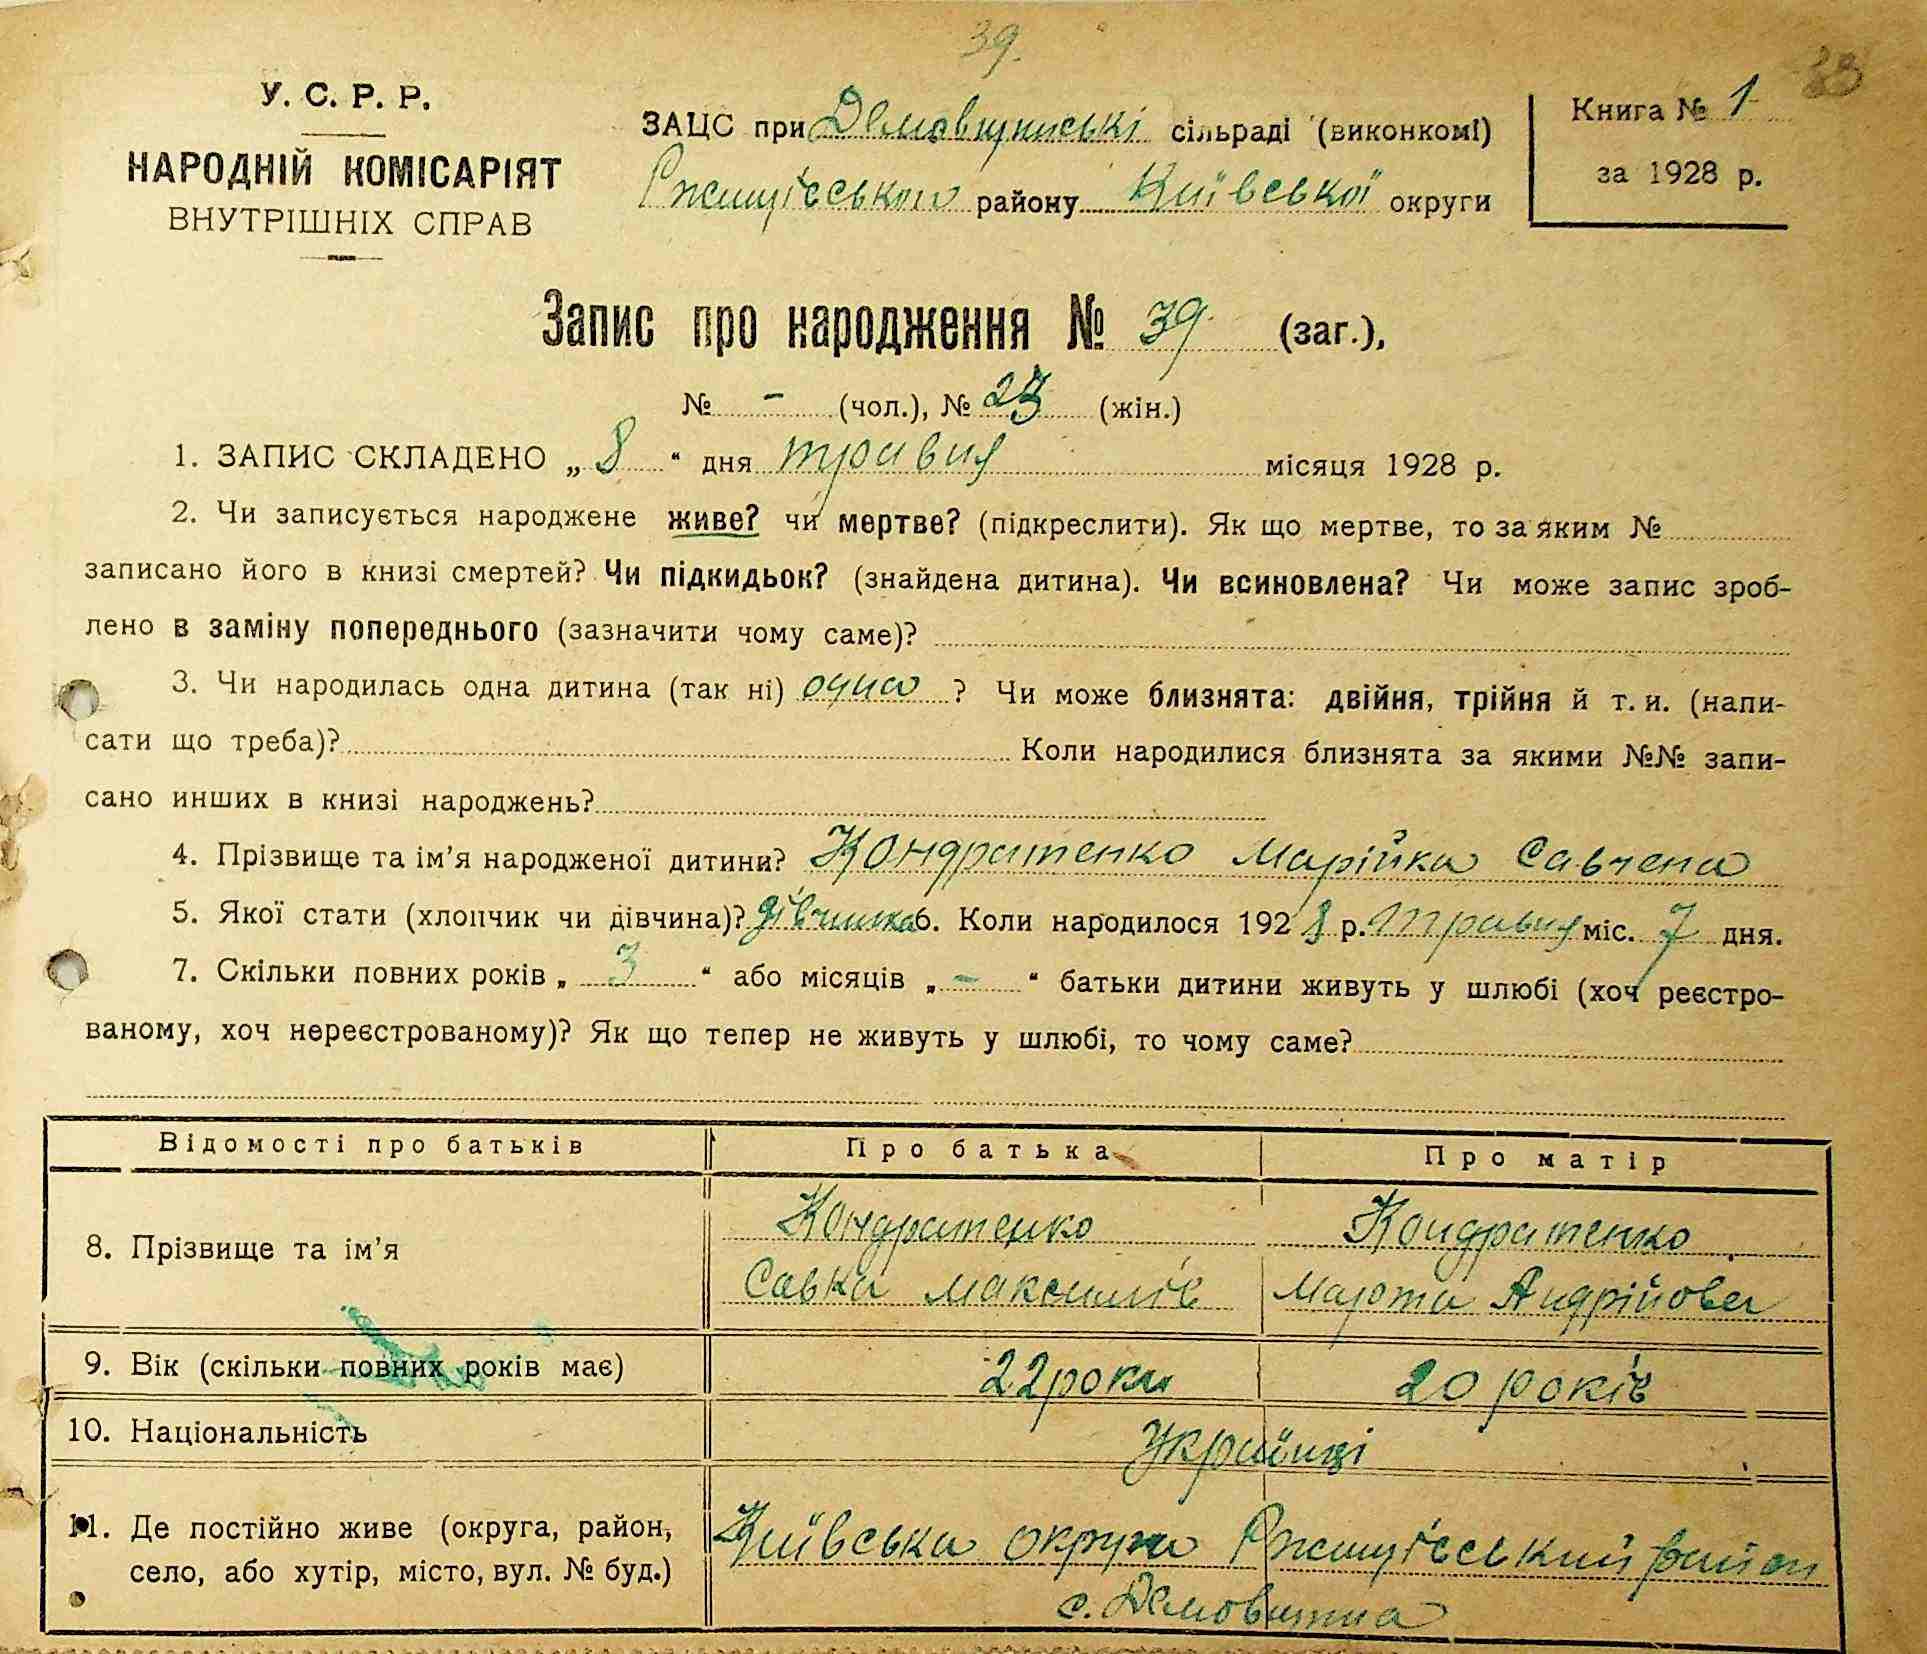 39.
33
У. С. Р. Р.
НАРОДНІЙ КОМІСАРІЯТ
ВНУТРІШНІХ СПРАВ
ЗАЦС при Демовщинські сільраді (виконкомі)
Ржищівського району Київської округи
Книга № 1
за 1928 р.
Запис про народження № 39 (заг.),
№ - (чол.), № 23 (жін.)
1. ЗАПИС СКЛАДЕНО „ 8 “ дня травня місяця 1928 р.
2. Чи записується народжене живе? чи мертве? (підкреслити). Як що мертве, то за яким №
записано його в книзі смертей? Чи підкидьок? (знайдена дитина). Чи всиновлена? Чи може запис зроб-
лено в заміну попереднього (зазначити чому саме)?
3. Чи народилась одна дитина (так ні) одна ? Чи може близнята: двійня, трійня й т. и. (напи-
сати що треба)? Коли народилися близнята за якими №№ запи-
сано инших в книзі народжень?
4. Прізвище та ім’я народженої дитини? Кондратенко Марійка Савчена
5. Якої стати (хлопчик чи дівчина)? дівчинка 6. Коли народилося 1928 р. травня міс. 7 дня.
7. Скільки повних років „ 3 “ або місяців „ - “ батьки дитини живуть у шлюбі (хоч реєстро-
ваному, хоч нереєстрованому)? Як що тепер не живуть у шлюбі, то чому саме?
Відомості про батьків Про батька Про матір
8. Прізвище та ім’я Кондратенко Савка Максимів Кондратенко Марта Андрійова
9. Вік (скільки повних років має) 22 роки 20 років
10. Національність Українці
11. Де постійно живе (округа, район, Київська округа Ржищівський район
село, або хутір, місто, вул. № буд.) с. Демовщина